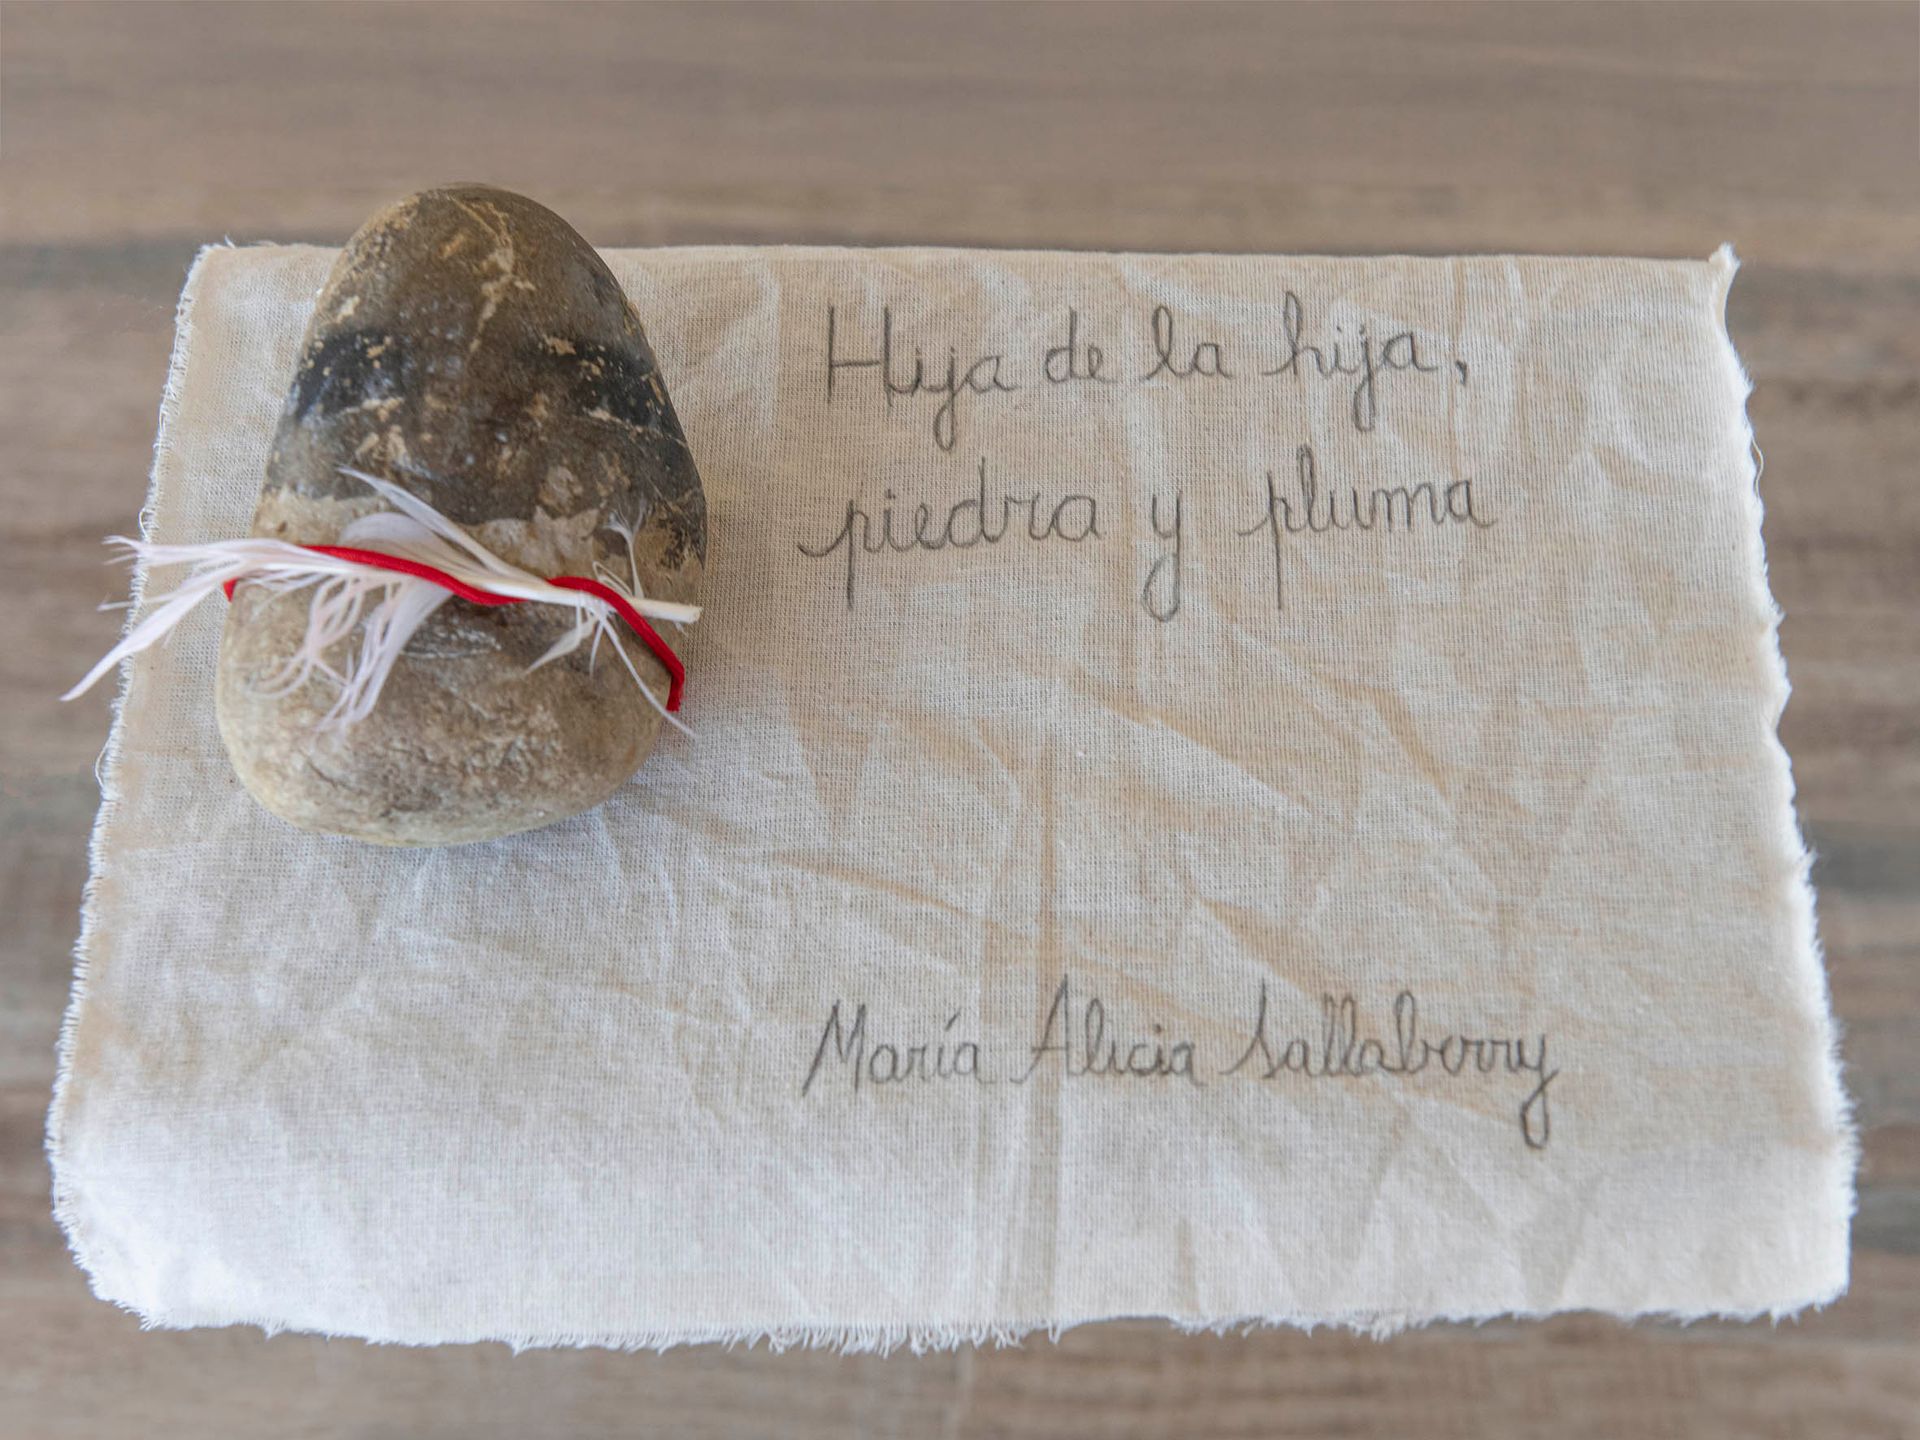 Hija de la hija,
piedra y pluma
María Alicia Sallaberry